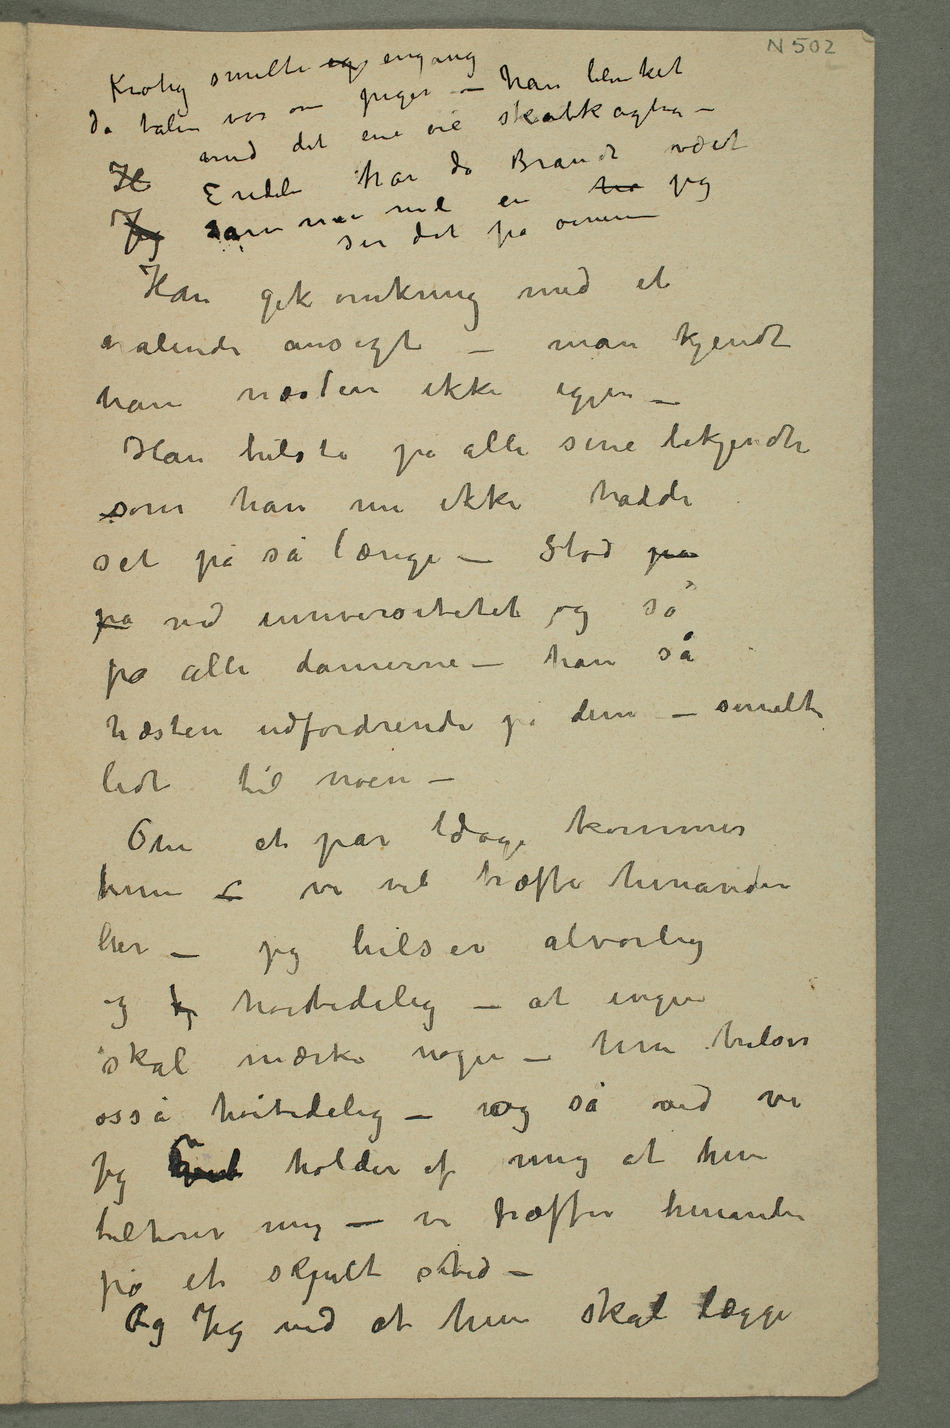 N 502
Krohg smilte engang
da talen var om piger – han blinket
med det ene øie skalkagtig –
Endelig har da Brandt været
sammen med en jeg
ser det på øinene
Han gik omkring med et
strålende ansigt – man kjendte
ham næsten ikke igjen –
Han hilste på alle sine bekjendte
som han nu ikke hadde
set på så længe – Stod på
på ved universitetet og så
på alle damerne – han så
næsten udfordrende på dem – smilte
lidt til noen –
Om et par dage kommer
hun – vi vil træffe hinanden
her – jeg hilser alvorlig
og høitidelig – at ingen
skal mærke nogen – hun hilser
osså høitidelig – og så ved vi
jeg holder af mig at hun
tilhører mig – vi træffer hinanden
på et skjult sted –
Og Jeg ved at hun skal lægge